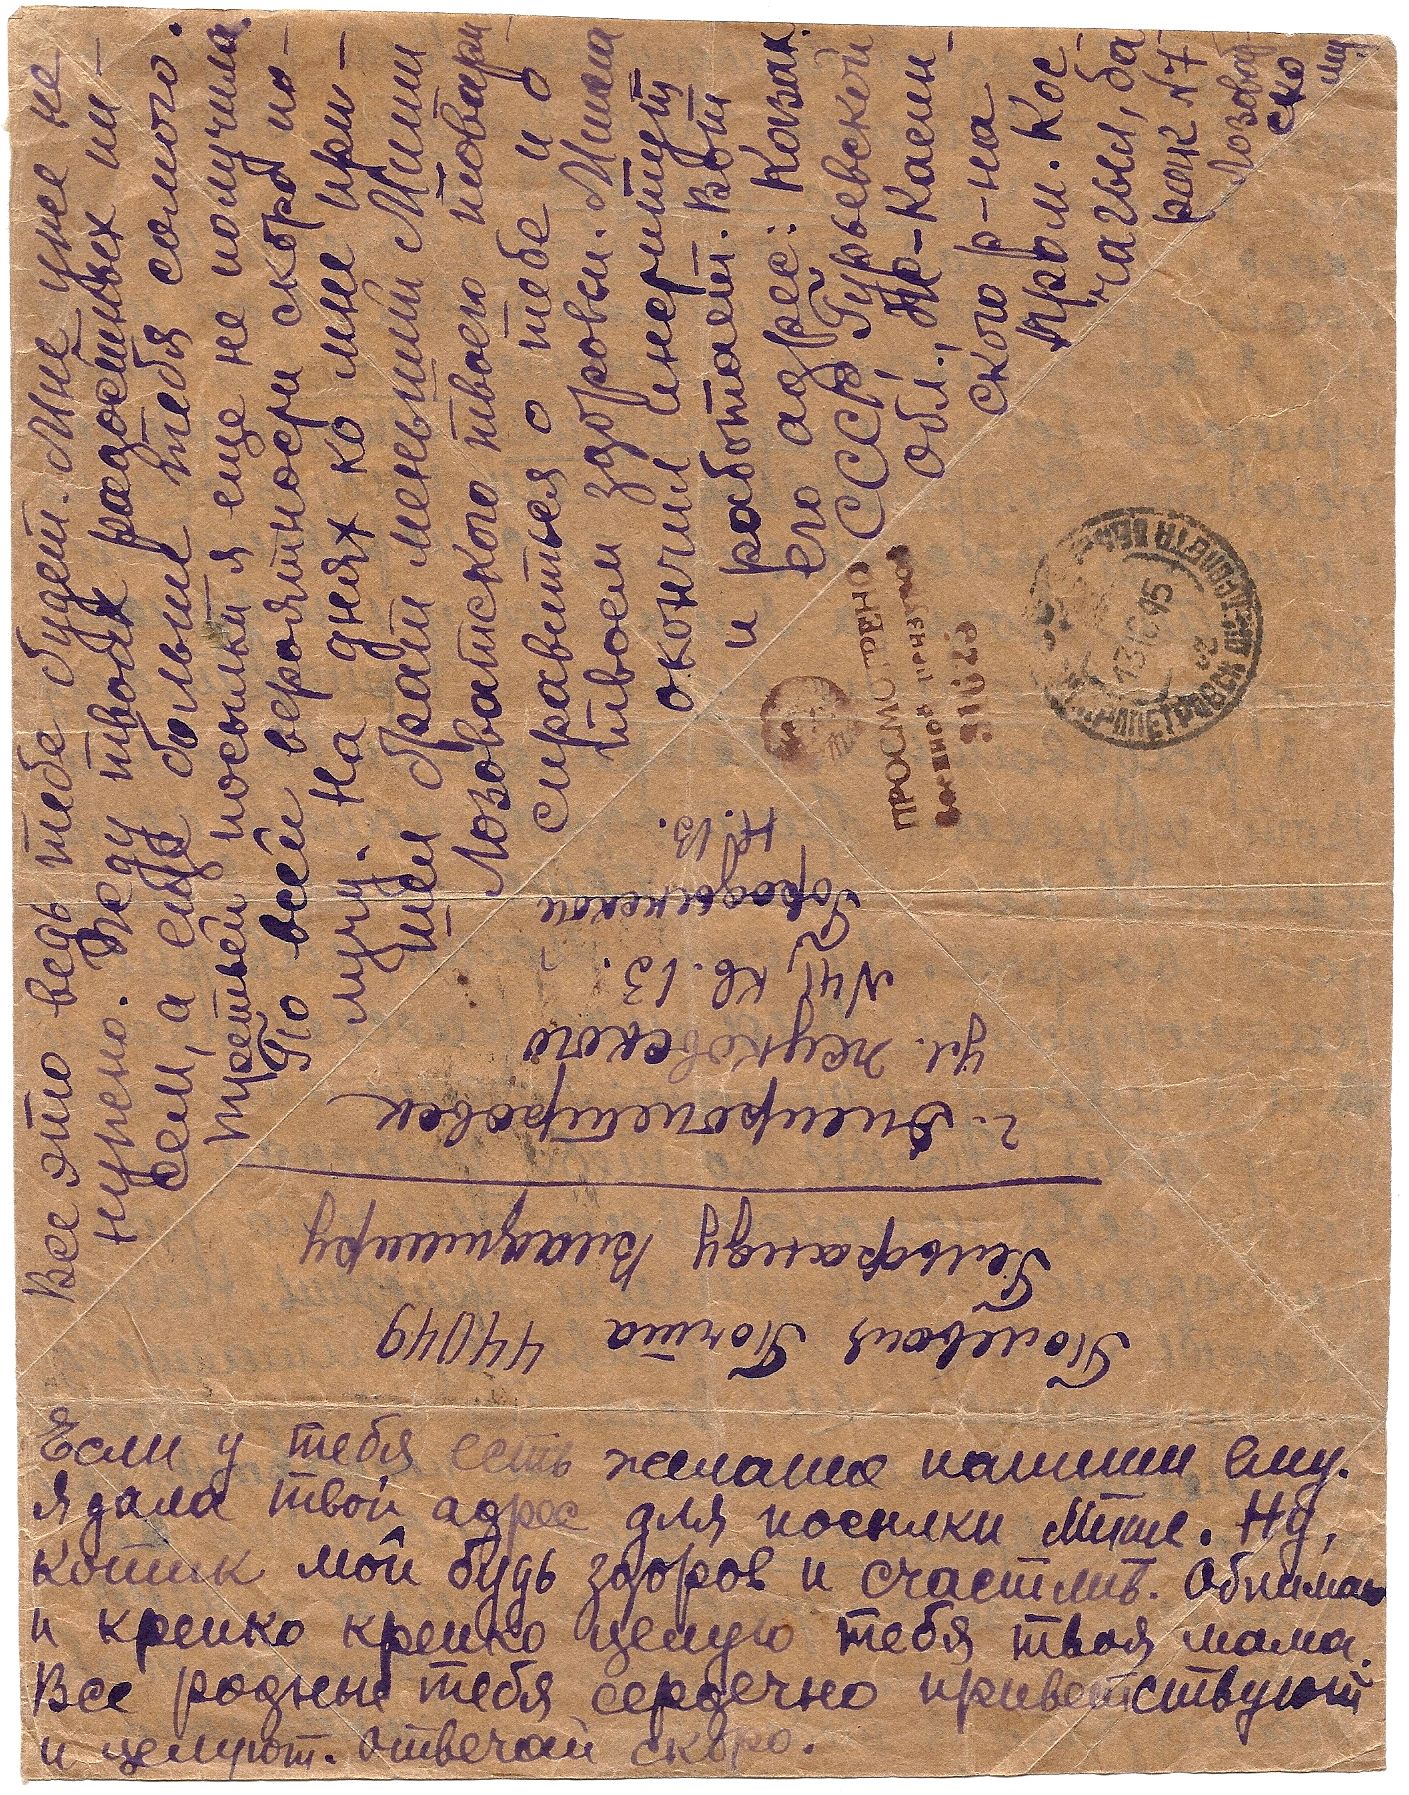 Все это ведь тебе будет. Мне уже не
нужно. Жду твоих радостных пи-
сем, а еще больше тебя самого.
Третьей посылки я еще не получила.
По всей вероятности скоро по-
лучу. На днях ко мне при-
шел брат меньший Миши
Лозоватского твоего товари-
справится о тебе и о
твоем здоровьи. Миша
окончил институт
и работает. Вот
его адрес: Казах.
ССР Гурьевской
Обл.,
ского р-на
Пром. Кос-
чагыл, ба
рак N 7
Лозоват-
ско
му
Полевая Почта 44049
Гельфанду Владимиру
г. Днепропетровск
ул. Жуковского
N 4 кв. 13.
Городынской
Н. В.
ПРОСМОТРЕНО
Военной Цензурой
31029
ДНЕПРОПЕТРОВСК
13 6 45
Если у тебя есть желание напиши ему.
Я дала твой адрес для посылки Мише. Ну,
котик мой будь здоров и счастлив. Обнимаю
и крепко крепко целую тебя твоя мама.
Все родные тебя сердечно приветствуют
и целуют. Отвечай скоро.